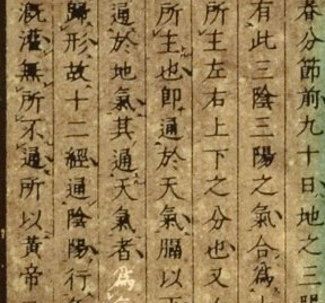 春分節前九十日地之三
有此三陰三陽之氣合為
所主左右上下之分也又
所主也即通於天氣膈以下
通於地氣其通天氣者為
歸形故十二經通陰陽行
溉灌無所不通所以黃帝